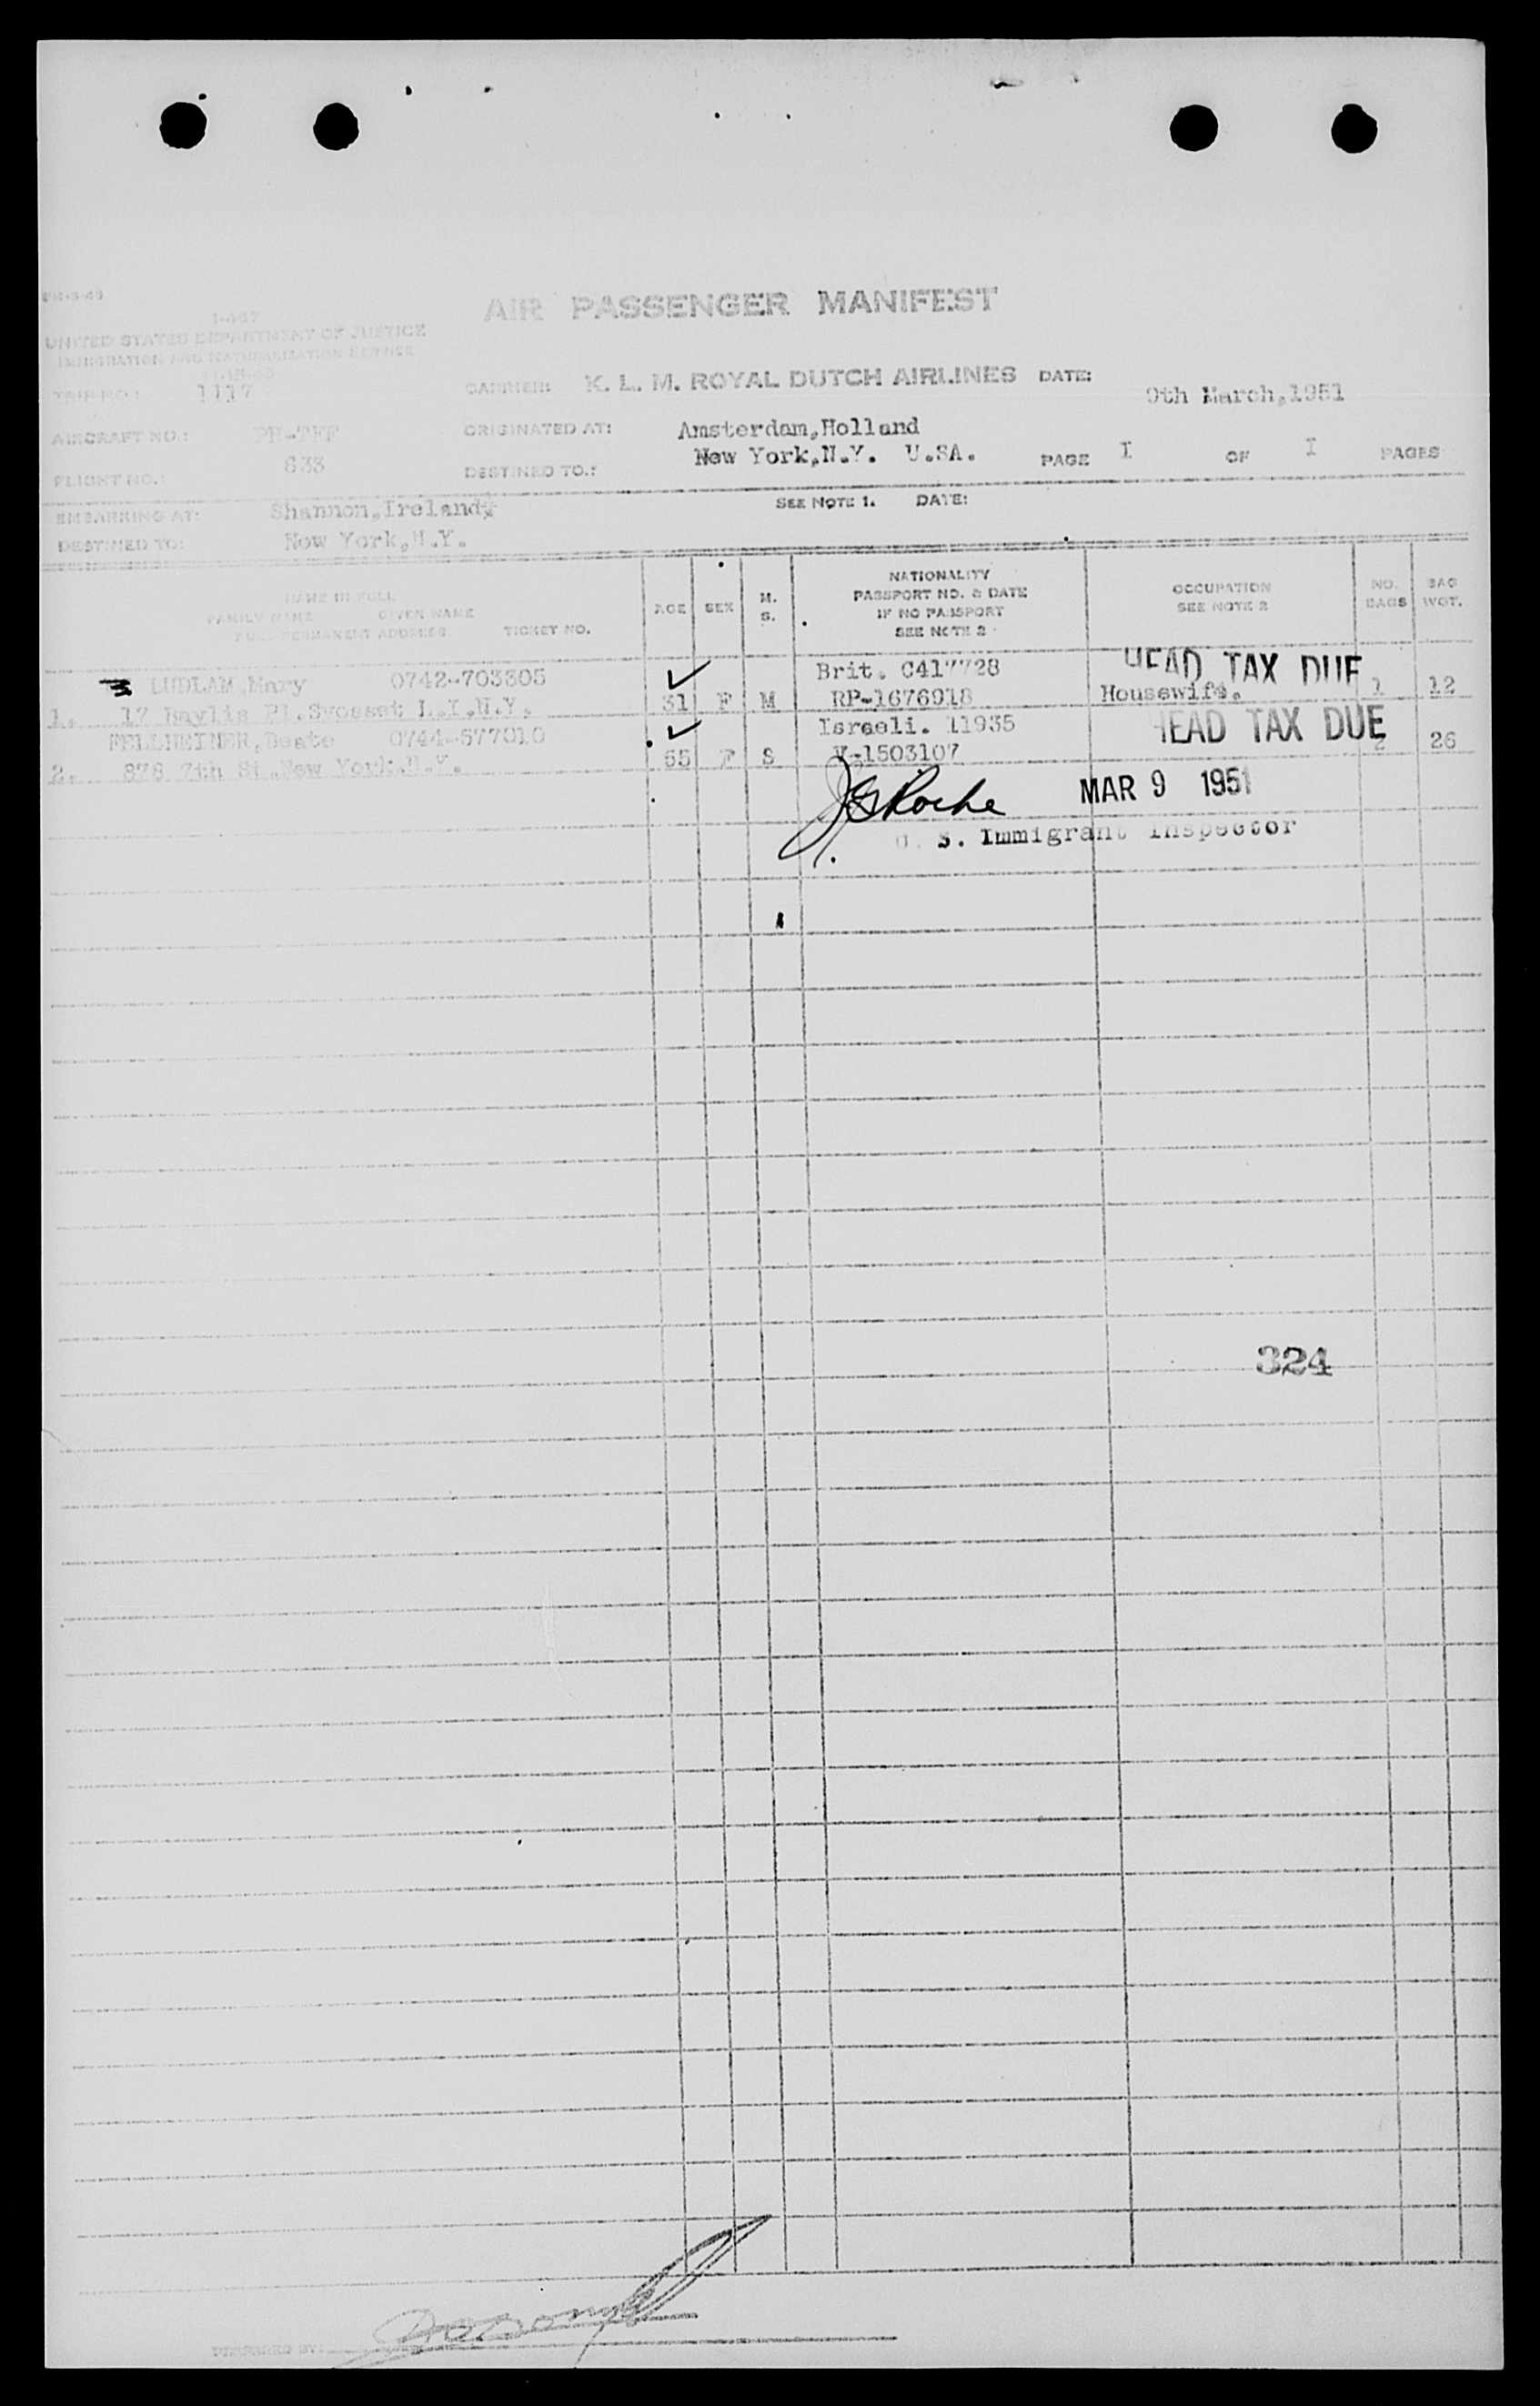 AIR PASSENGER MANIFEST
I-467
UNITED STATES DEPARTMENT OF JUSTICE
IMMIGRATION AND NATURALIZATION SERVICE
TRIP NO.: 1117
CARRIER: K. L. M. ROYAL DUTCH AIRLINES DATE: 9th March,1951
AIRCRAFT NO.: PH-TFF ORIGINATED AT: Amsterdam,Holland
FLIGHT NO.: 633 DESTINED TO.: New York,N.Y. U.SA. PAGE I OF I PAGES
EMBARKING AT: Shannon,Ireland SEE NOTE 1. DATE:
DESTINED TO: New York,N.Y.
NAME IN FULL
FAMILY NAME GIVEN NAME
FULL PERMANENT ADDRESS TICKET NO.
AGE SEX M. S.
NATIONALITY
PASSPORT NO. & DATE
IF NO PASSPORT
SEE NOTE 2
OCCUPATION
SEE NOTE 2
NO. BAGS
BAG WGT.
LUDLAM,Mary 0742-703305 Brit. C417728 HEAD TAX DUE
1. 17 Baylis Pl.Syosset L.I.N.Y. 31 F M RP-1676918 Housewife. 1 12
FELLHEIMER,Beate 0744-577010 Israeli. 11935 HEAD TAX DUE
2. 876 7th St.New York.N.Y. 55 F S V-1503107 2 26
Roche MAR 9 1951
U. S. Immigrant Inspector
324
PREPARED BY: